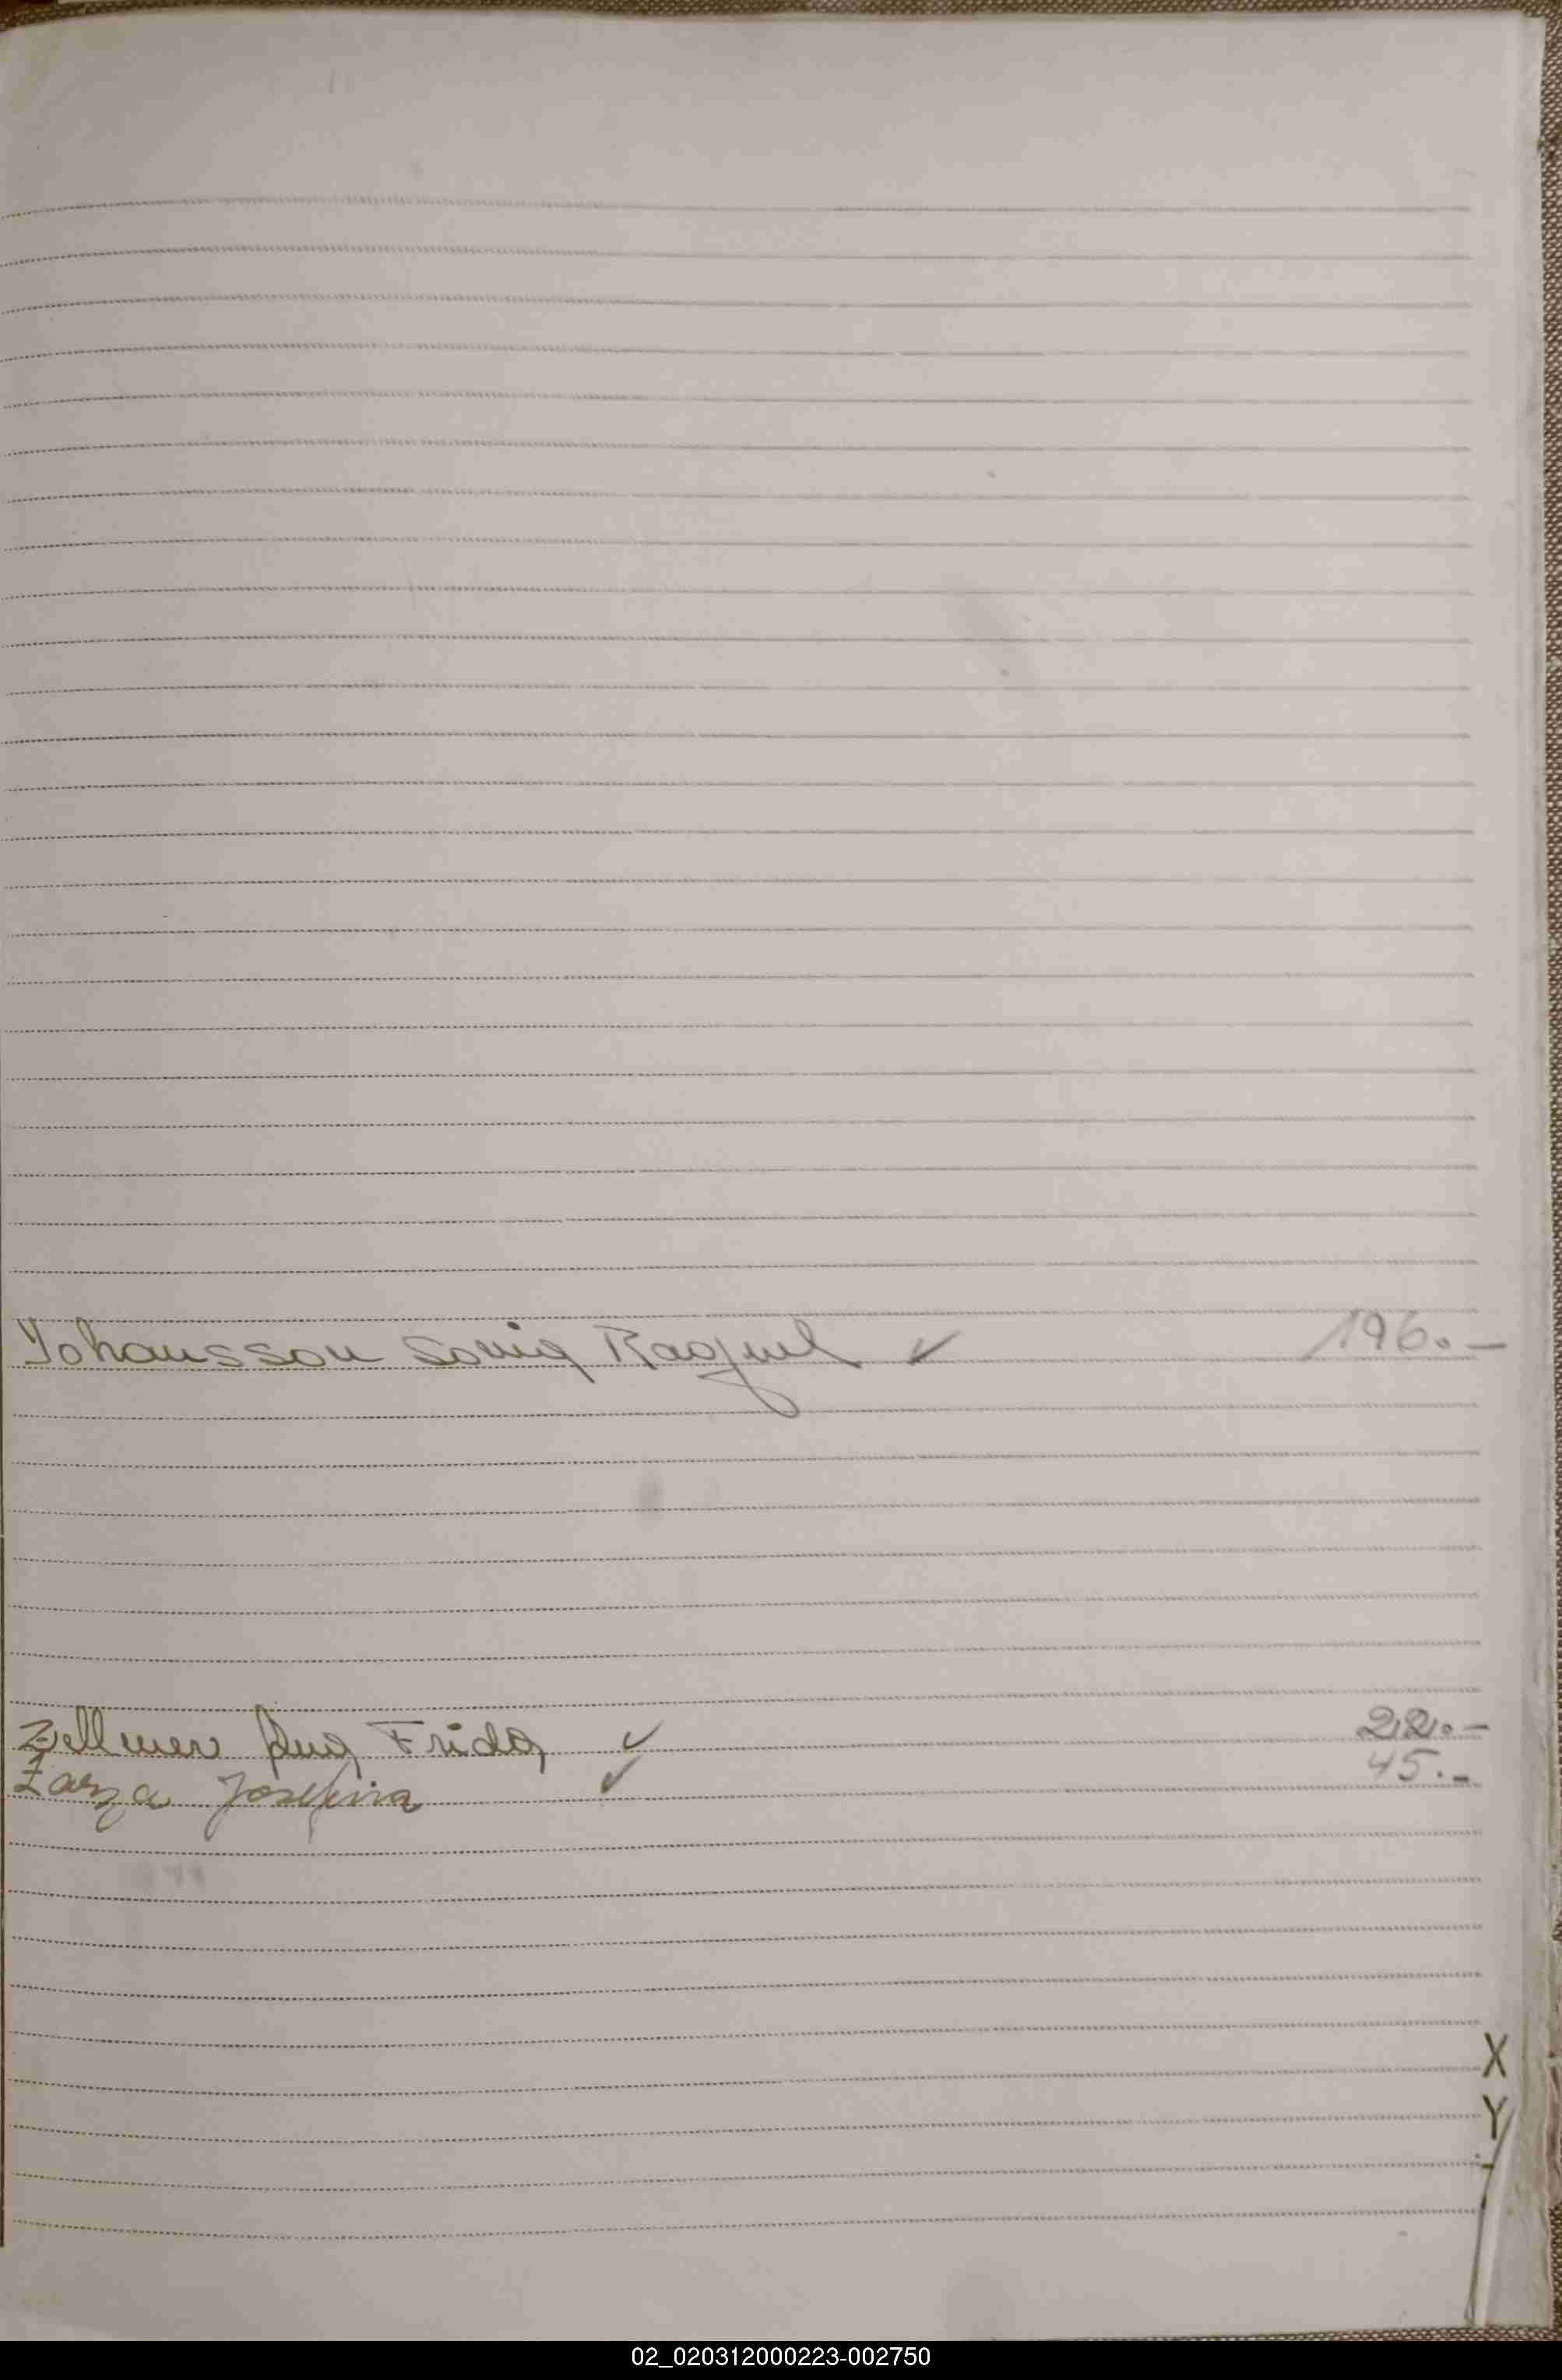 Yohansson Sonia Raquel ✓ 196.-
Zellmer Ana Frida ✓ 22.-
Zarza Josefina ✓ 45.-
X
Y
02_020312000223-002750